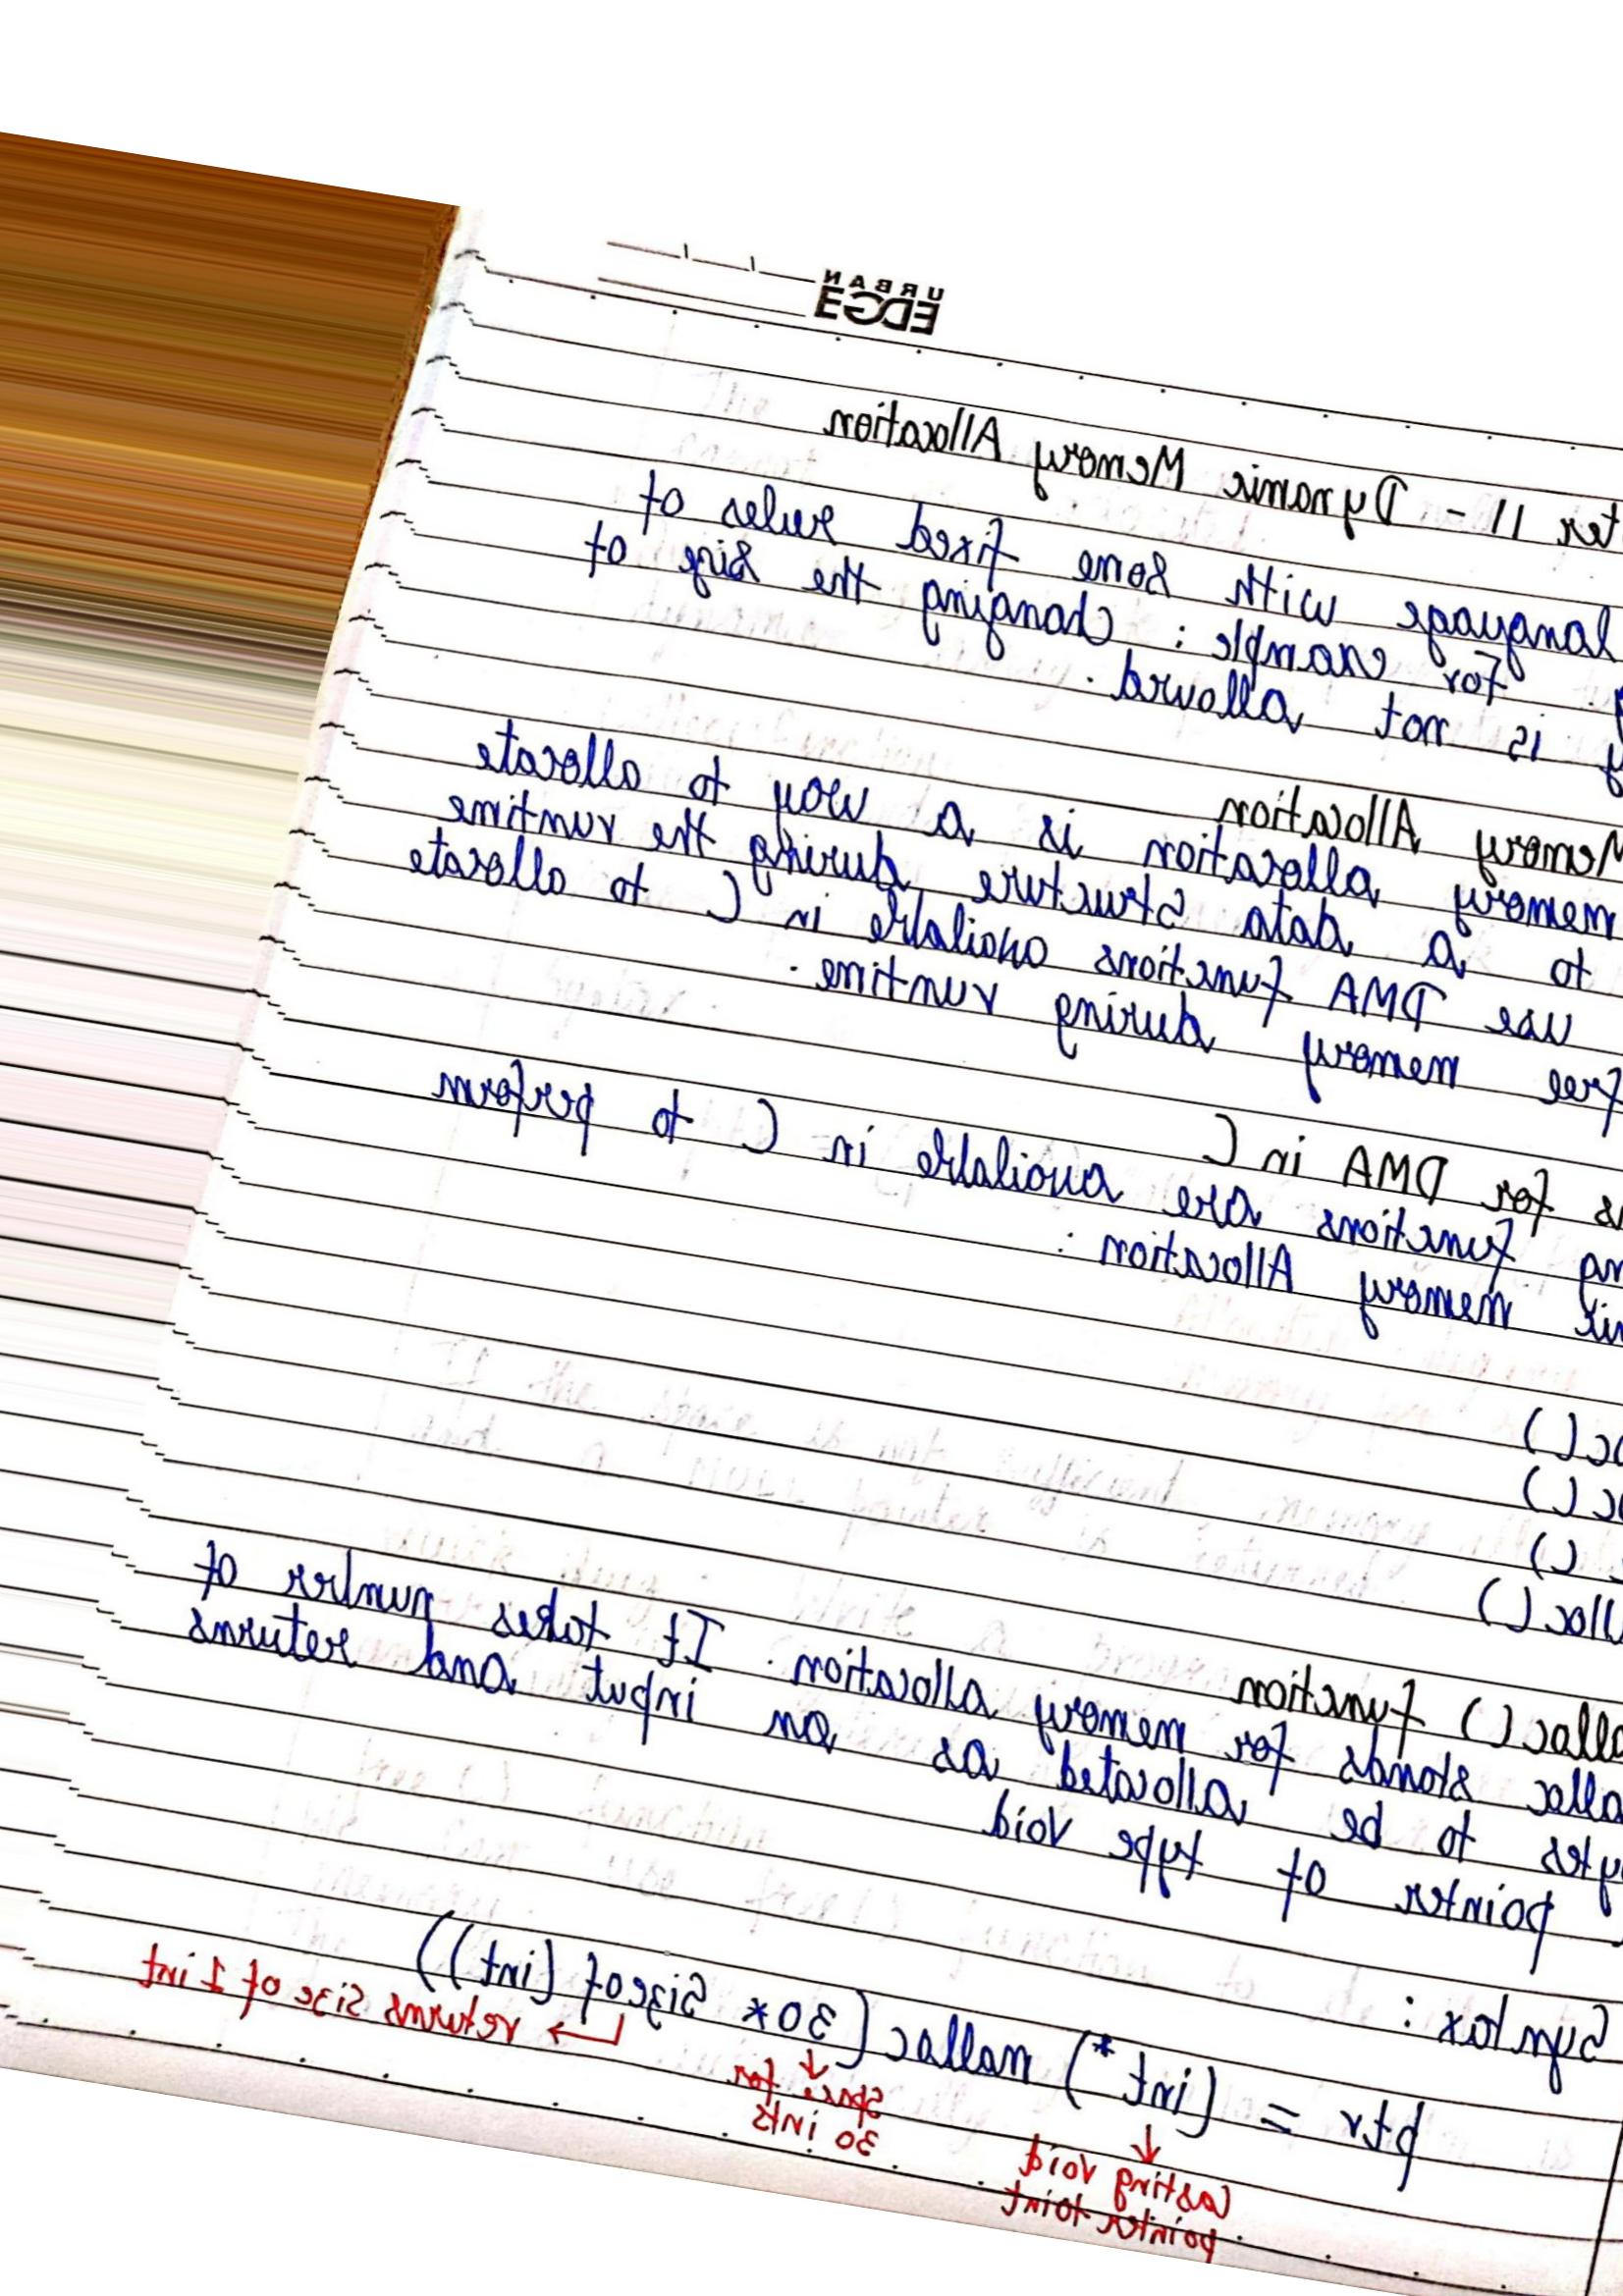 URBAN
EDGE
ter 11 - Dynamic Memory Allocation
language with some fixed rules of
for example : Changing the size of
y is not allowed.
Memory Allocation
memory allocation is a way to allocate
to a data structure during the runtime
use DMA functions available in C to allocate
free memory during runtime.
s for DMA in C
ng functions are available in C to perform
mic memory Allocation :
oc()
oc()
c()
lloc()
alloc() function
alloc stands for memory allocation. It takes number of
ytes to be allocated as an input and returns
pointer of type void
Syntax :
ptr = (int *) malloc (30 * sizeof (int))
returns size of 1 int
space for
30 ints
Casting void
pointer to int